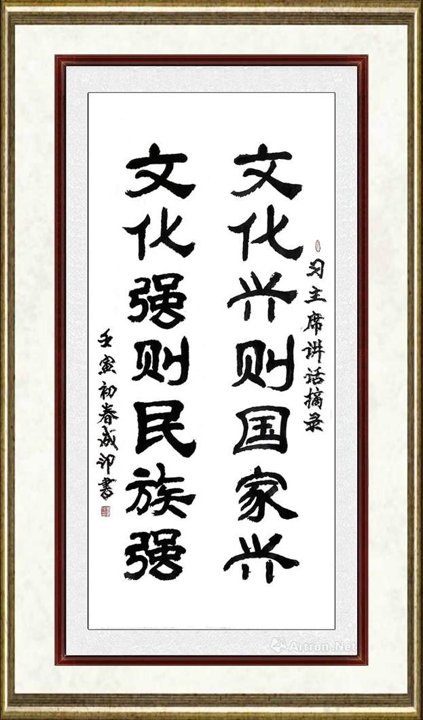 习主席讲话摘录
文化兴则国家兴
文化强则民族强
壬寅初春成印書
Artron.Net